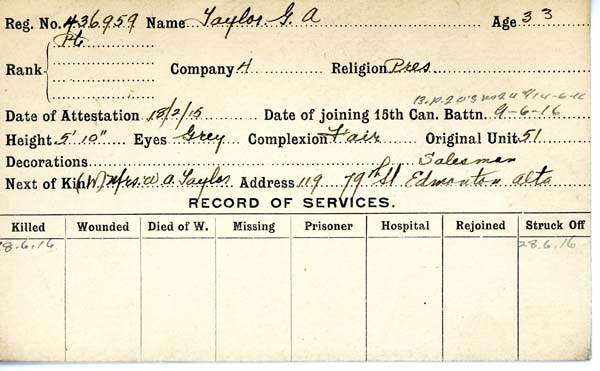 Reg. No. 436959 Name Taylor G. A Age 33
Rank Pte Company 4 Religion Pres
B.P.2 O's 14-6-16
Date of Attestation 15/2/15 Date of joining 15th Can. Battn. 9-6-16
Height 5' 10" Eyes Grey Complexion Fair Original Unit 51
Decorations Salesman
Next of Kin (W) Mrs. W A. Taylor Address 119 79th St Edmonton Alta
RECORD OF SERVICES.
Killed Wounded Died of W. Missing Prisoner Hospital Rejoined Struck Off
28.6.16 28.6.16